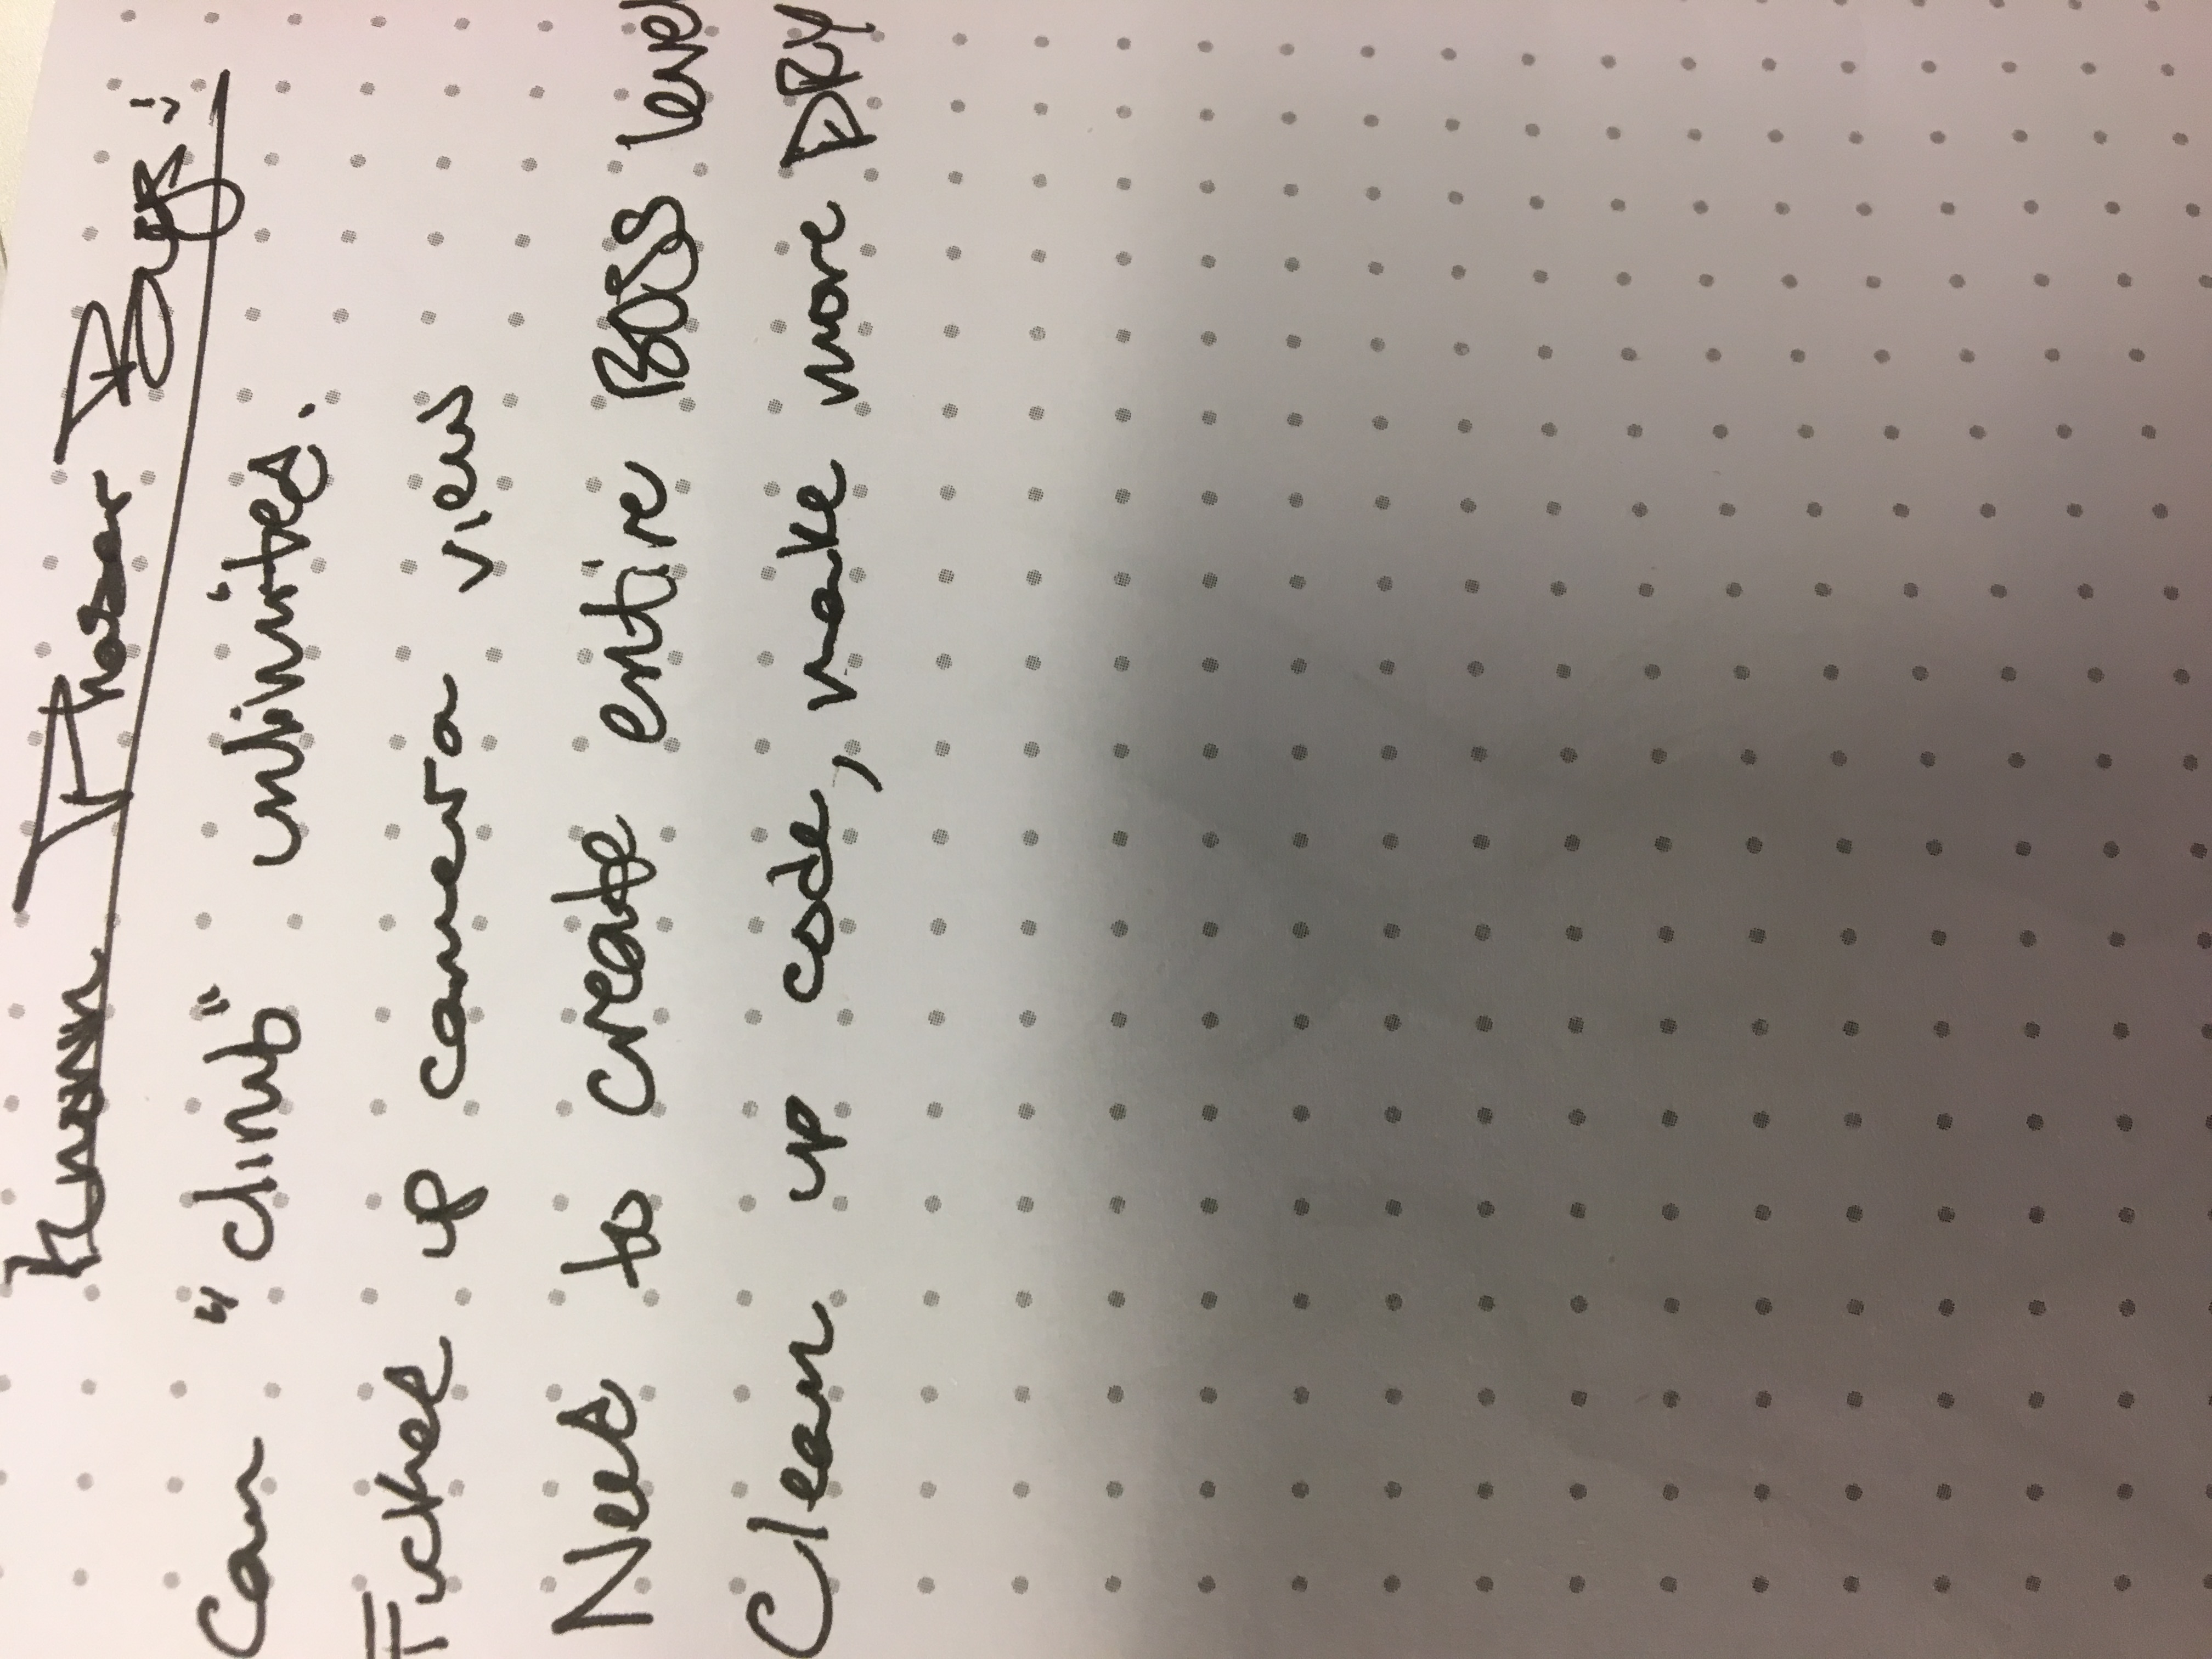 Known Phaser Bugs:
Can "climb" unlimited.
Fucked up camera view
Need to create entire BOSS level
Clean up code, make more DRY